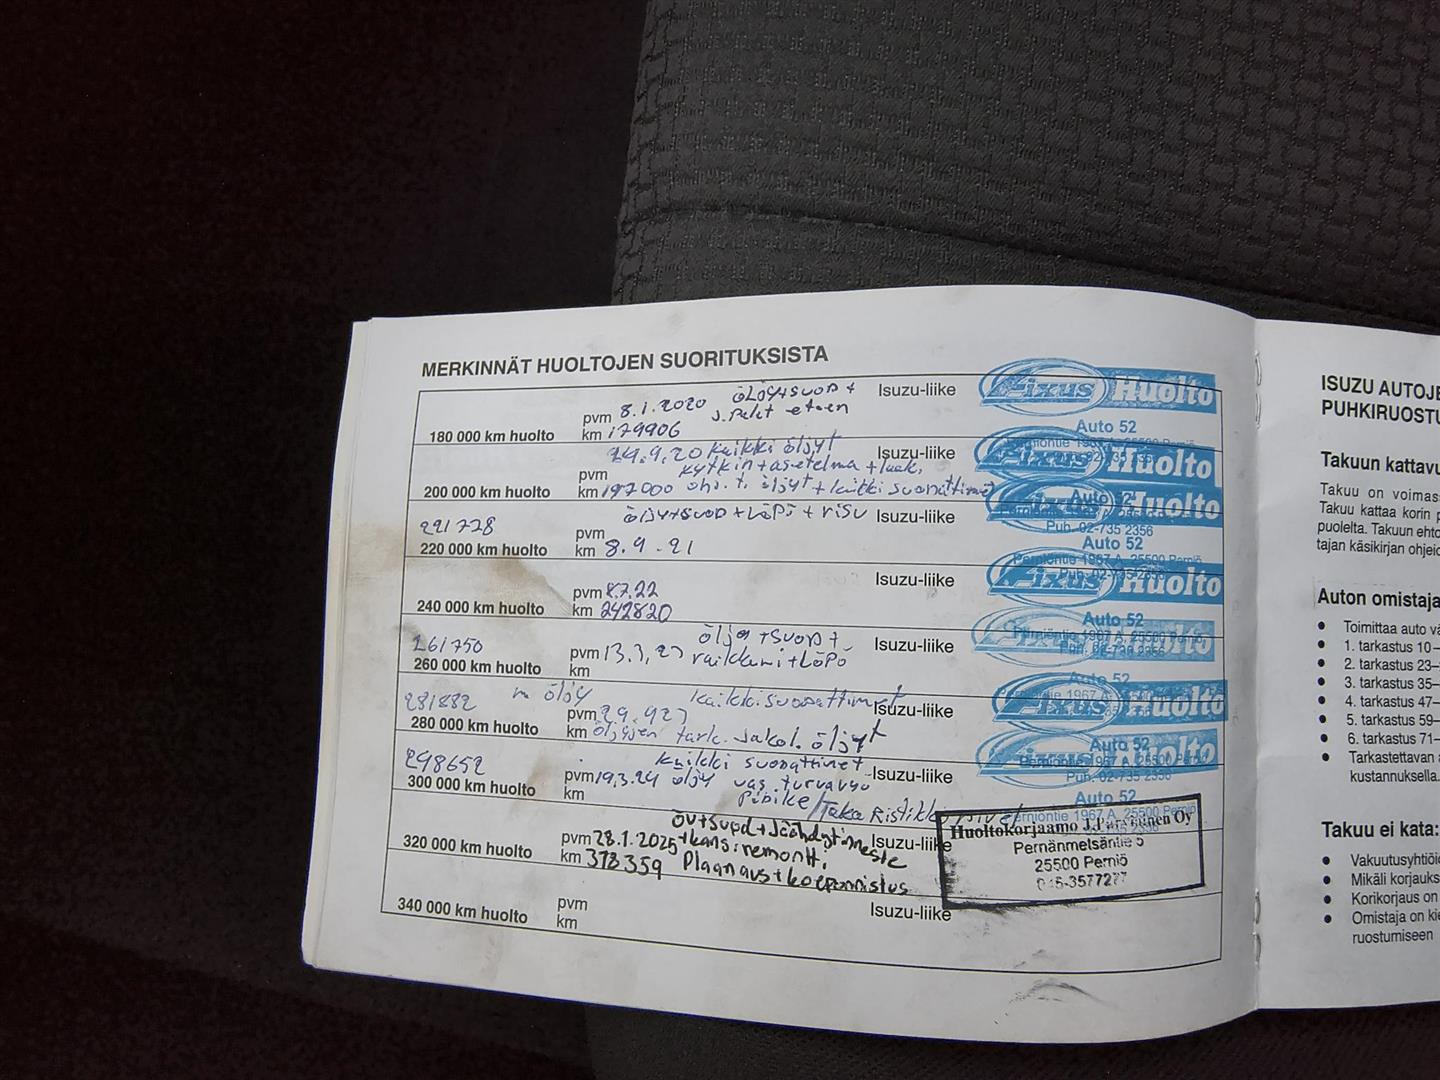 MERKINNÄT HUOLTOJEN SUORITUKSISTA
180 000 km huolto
pvm 8.1.2020 öljyt+suod+
j.palat eteen
km 179906
Isuzu-liike
Fixus Huolto
Auto 52
Perniöntie 1967 A, 25500 Perniö
200 000 km huolto
24.9.20 kaikki öljyt
pvm kytkin+asetelma+
km 197000 öljyt+kaikki suodattimet
Fixus Huolto
Auto 52
Puh. 02-735 2356
221728
220 000 km huolto
öljy+suod+LöPö+risu
pvm
km 8.9.21
Isuzu-liike
Huolto
Auto 52
Perniöntie 1967 A, 25500 Perniö
Puh. 02-735 2356
240 000 km huolto
pvm 8.7.22
km 242820
Isuzu-liike
Fixus Huolto
Auto 52
Perniöntie 1967 A, 25500 Perniö
Puh. 02-735 2356
261750
260 000 km huolto
öljy+suod+
pvm 13.3.23 raikkami+LöPö
km
Isuzu-liike
Huolto
281882 m öljy kaikki suodattimet
280 000 km huolto
pvm 29.9.23
km öljyjen tark. jakol. öljyt
Isuzu-liike
Fixus Huolto
Auto 52
298652 kaikki suodattimet
300 000 km huolto
pvm 19.3.24 öljy vas. turvavyö
km
Isuzu-liike
Fixus Huolto
Auto 52
Perniöntie 1967 A, 25500 Perniö
Puh. 02-735 2356
320 000 km huolto
öv+suod+Jäähdytinneste
pvm 28.1.2025+kansiremontti
km 318359 Plaanaus+koeponnistus
Isuzu-liike
Huoltokorjaamo
Pernänmetsäntie 5
25500 Perniö
045-3577277
340 000 km huolto
pvm
km
Isuzu-liike
ISUZU AUTOJE
PUHKIRUOSTU
Takuun kattavu
Takuu on voimass
Takuu kattaa korin p
puolelta. Takuun ehto
tajan käsikirjan ohjeid
Auton omistaja
• Toimittaa auto vä
• 1. tarkastus 10–
• 2. tarkastus 23–
• 3. tarkastus 35–
• 4. tarkastus 47–
• 5. tarkastus 59–
• 6. tarkastus 71–
• Tarkastettavan a
kustannuksella.
Takuu ei kata:
• Vakuutusyhtiöid
• Mikäli korjauks
• Korikorjaus on
• Omistaja on kie
ruostumiseen